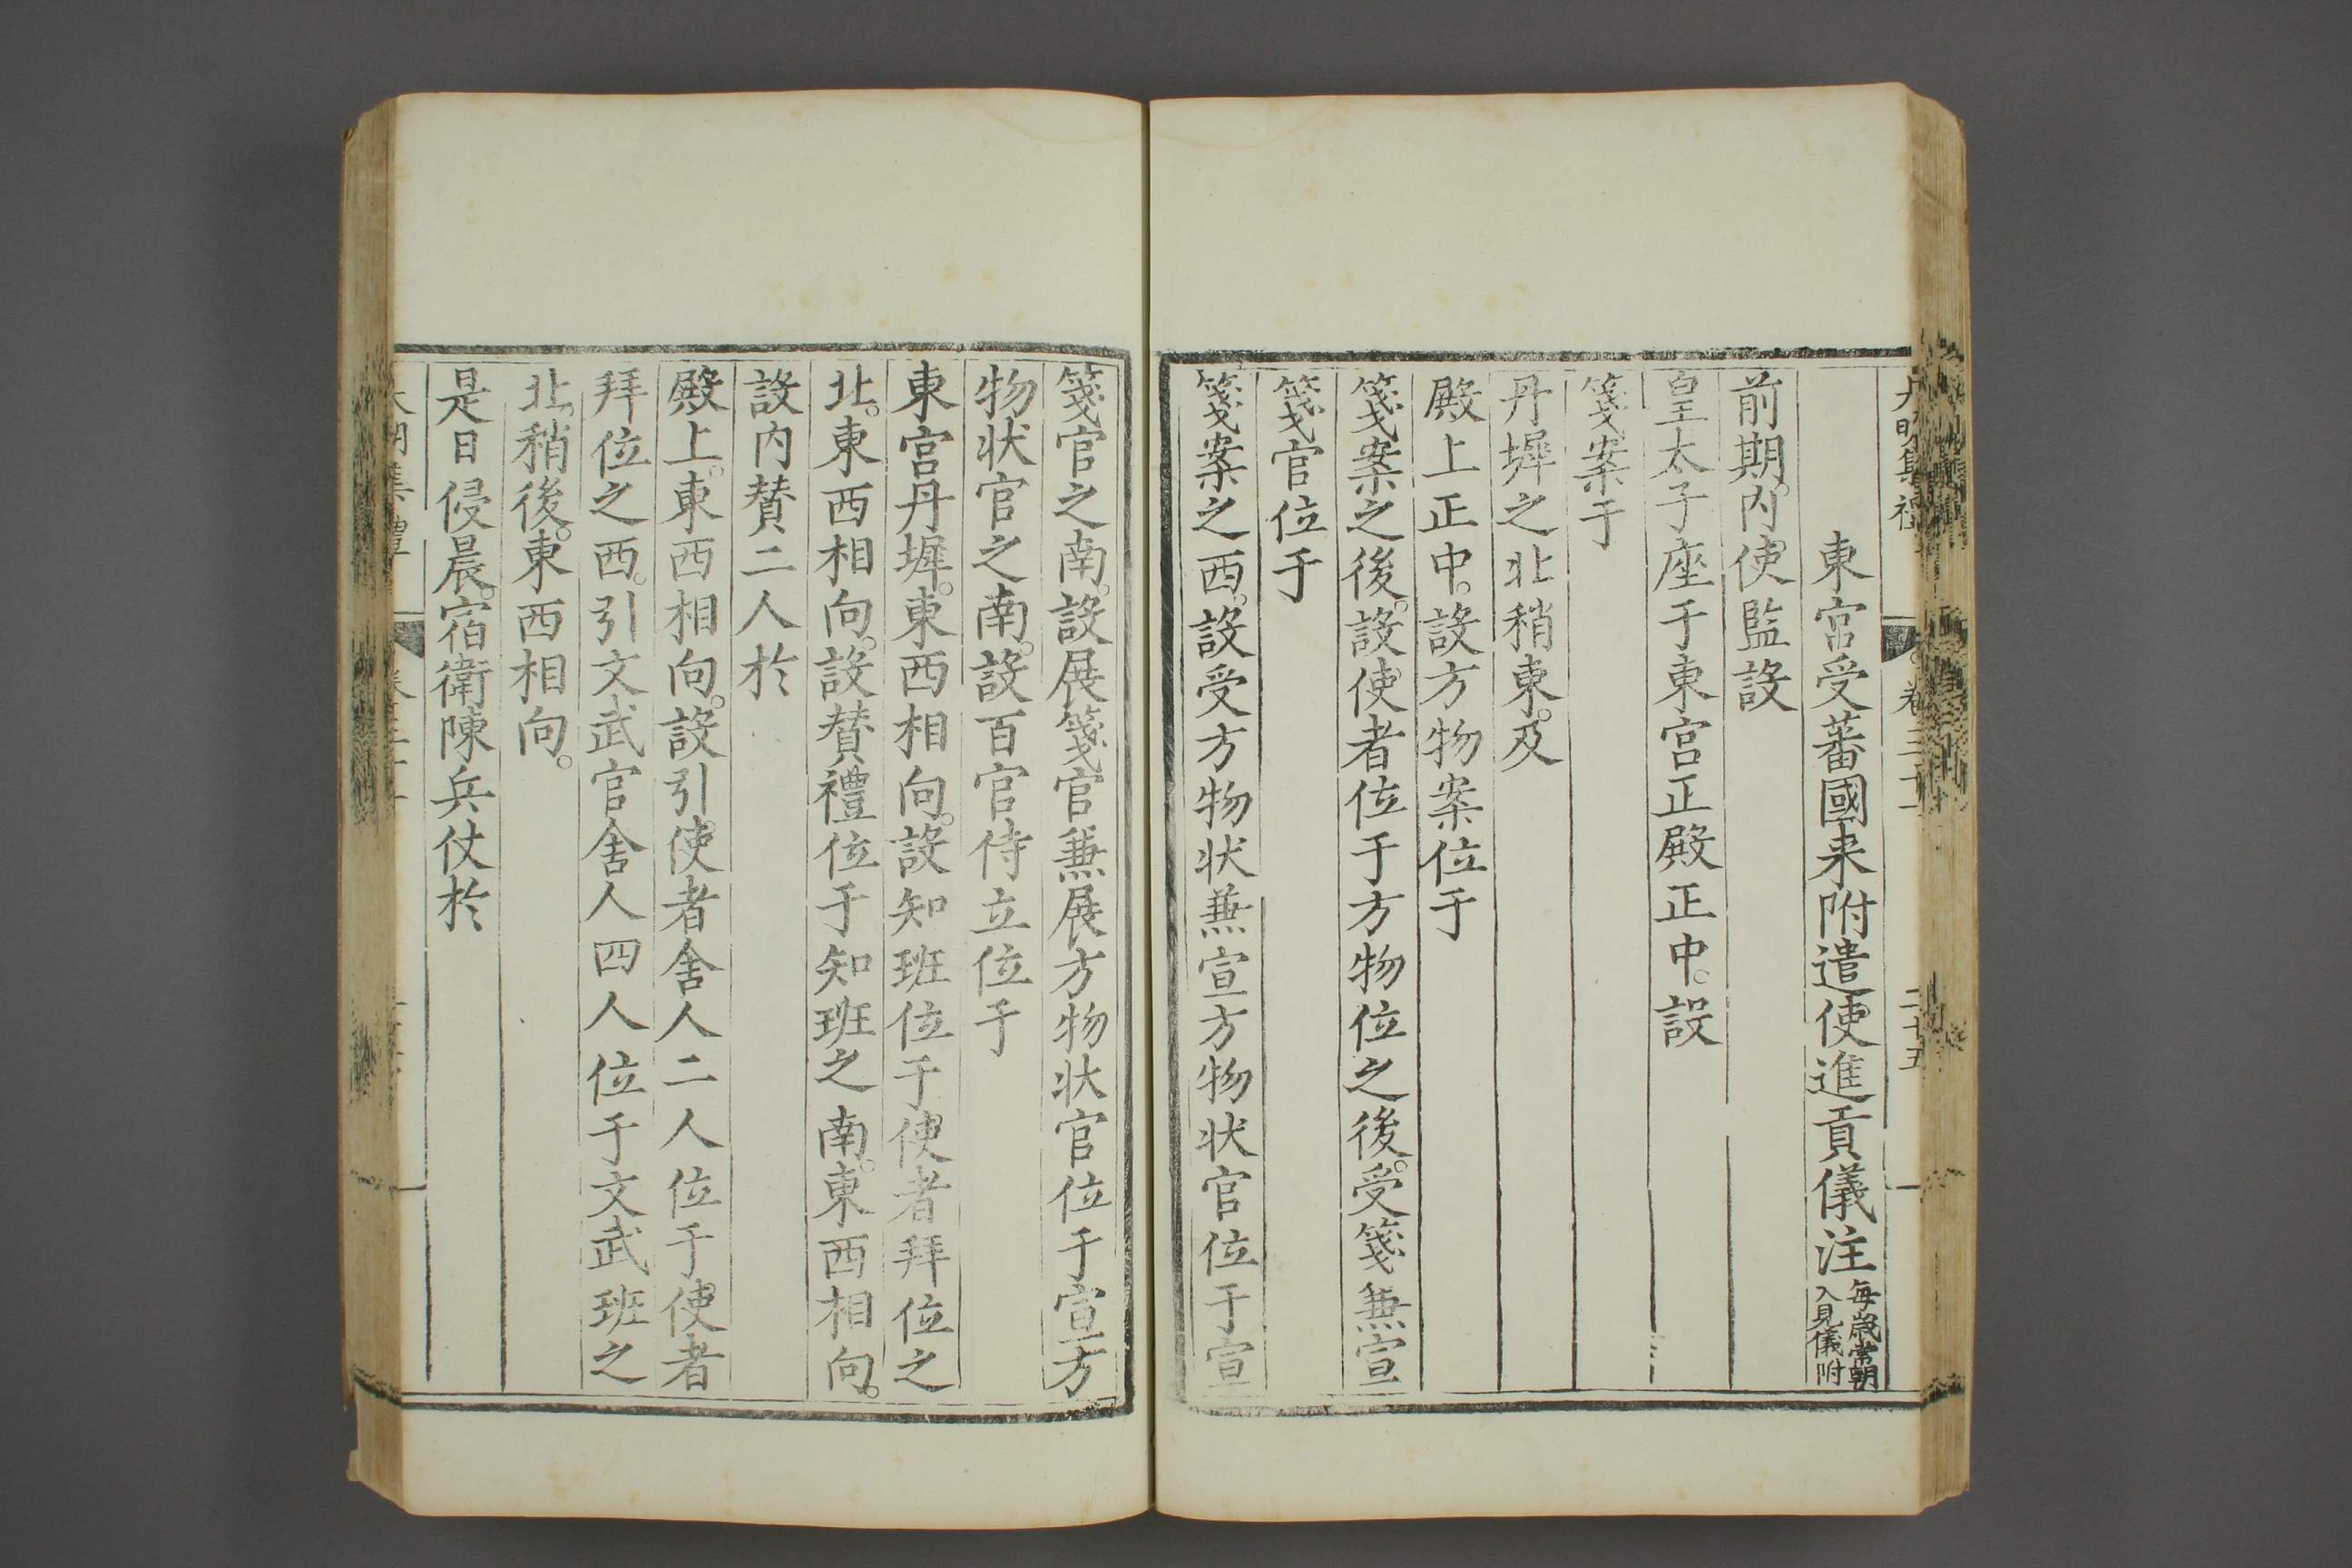 東宮受蕃國来附遣使進貢儀注每歲常朝入見儀附
前期。内使監設
皇太子座于東宮正殿正中。設
箋案于
丹墀之北稍東。及
殿上正中。設方物案位于
箋案之後。設使者位于方物位之後。受箋蕪宣
箋官位于
箋案之西。設受方物状蕪宣方物状官位于宣
箋官之南。設展箋官蕪展方物状官位于宣方
物状官之南。設百官侍立位于
東宮丹墀。東西相向。設知班位于使者拜位之
北。東西相向。設賛禮位于知班之南。東西相向。
設内賛二人於
殿上。東西相向。設引使者舍人二人位于使者
拜位之西。引文武官舍人四人位于文武班之
北。稍後。東西相向。
是日侵晨。宿衛陳兵仗於